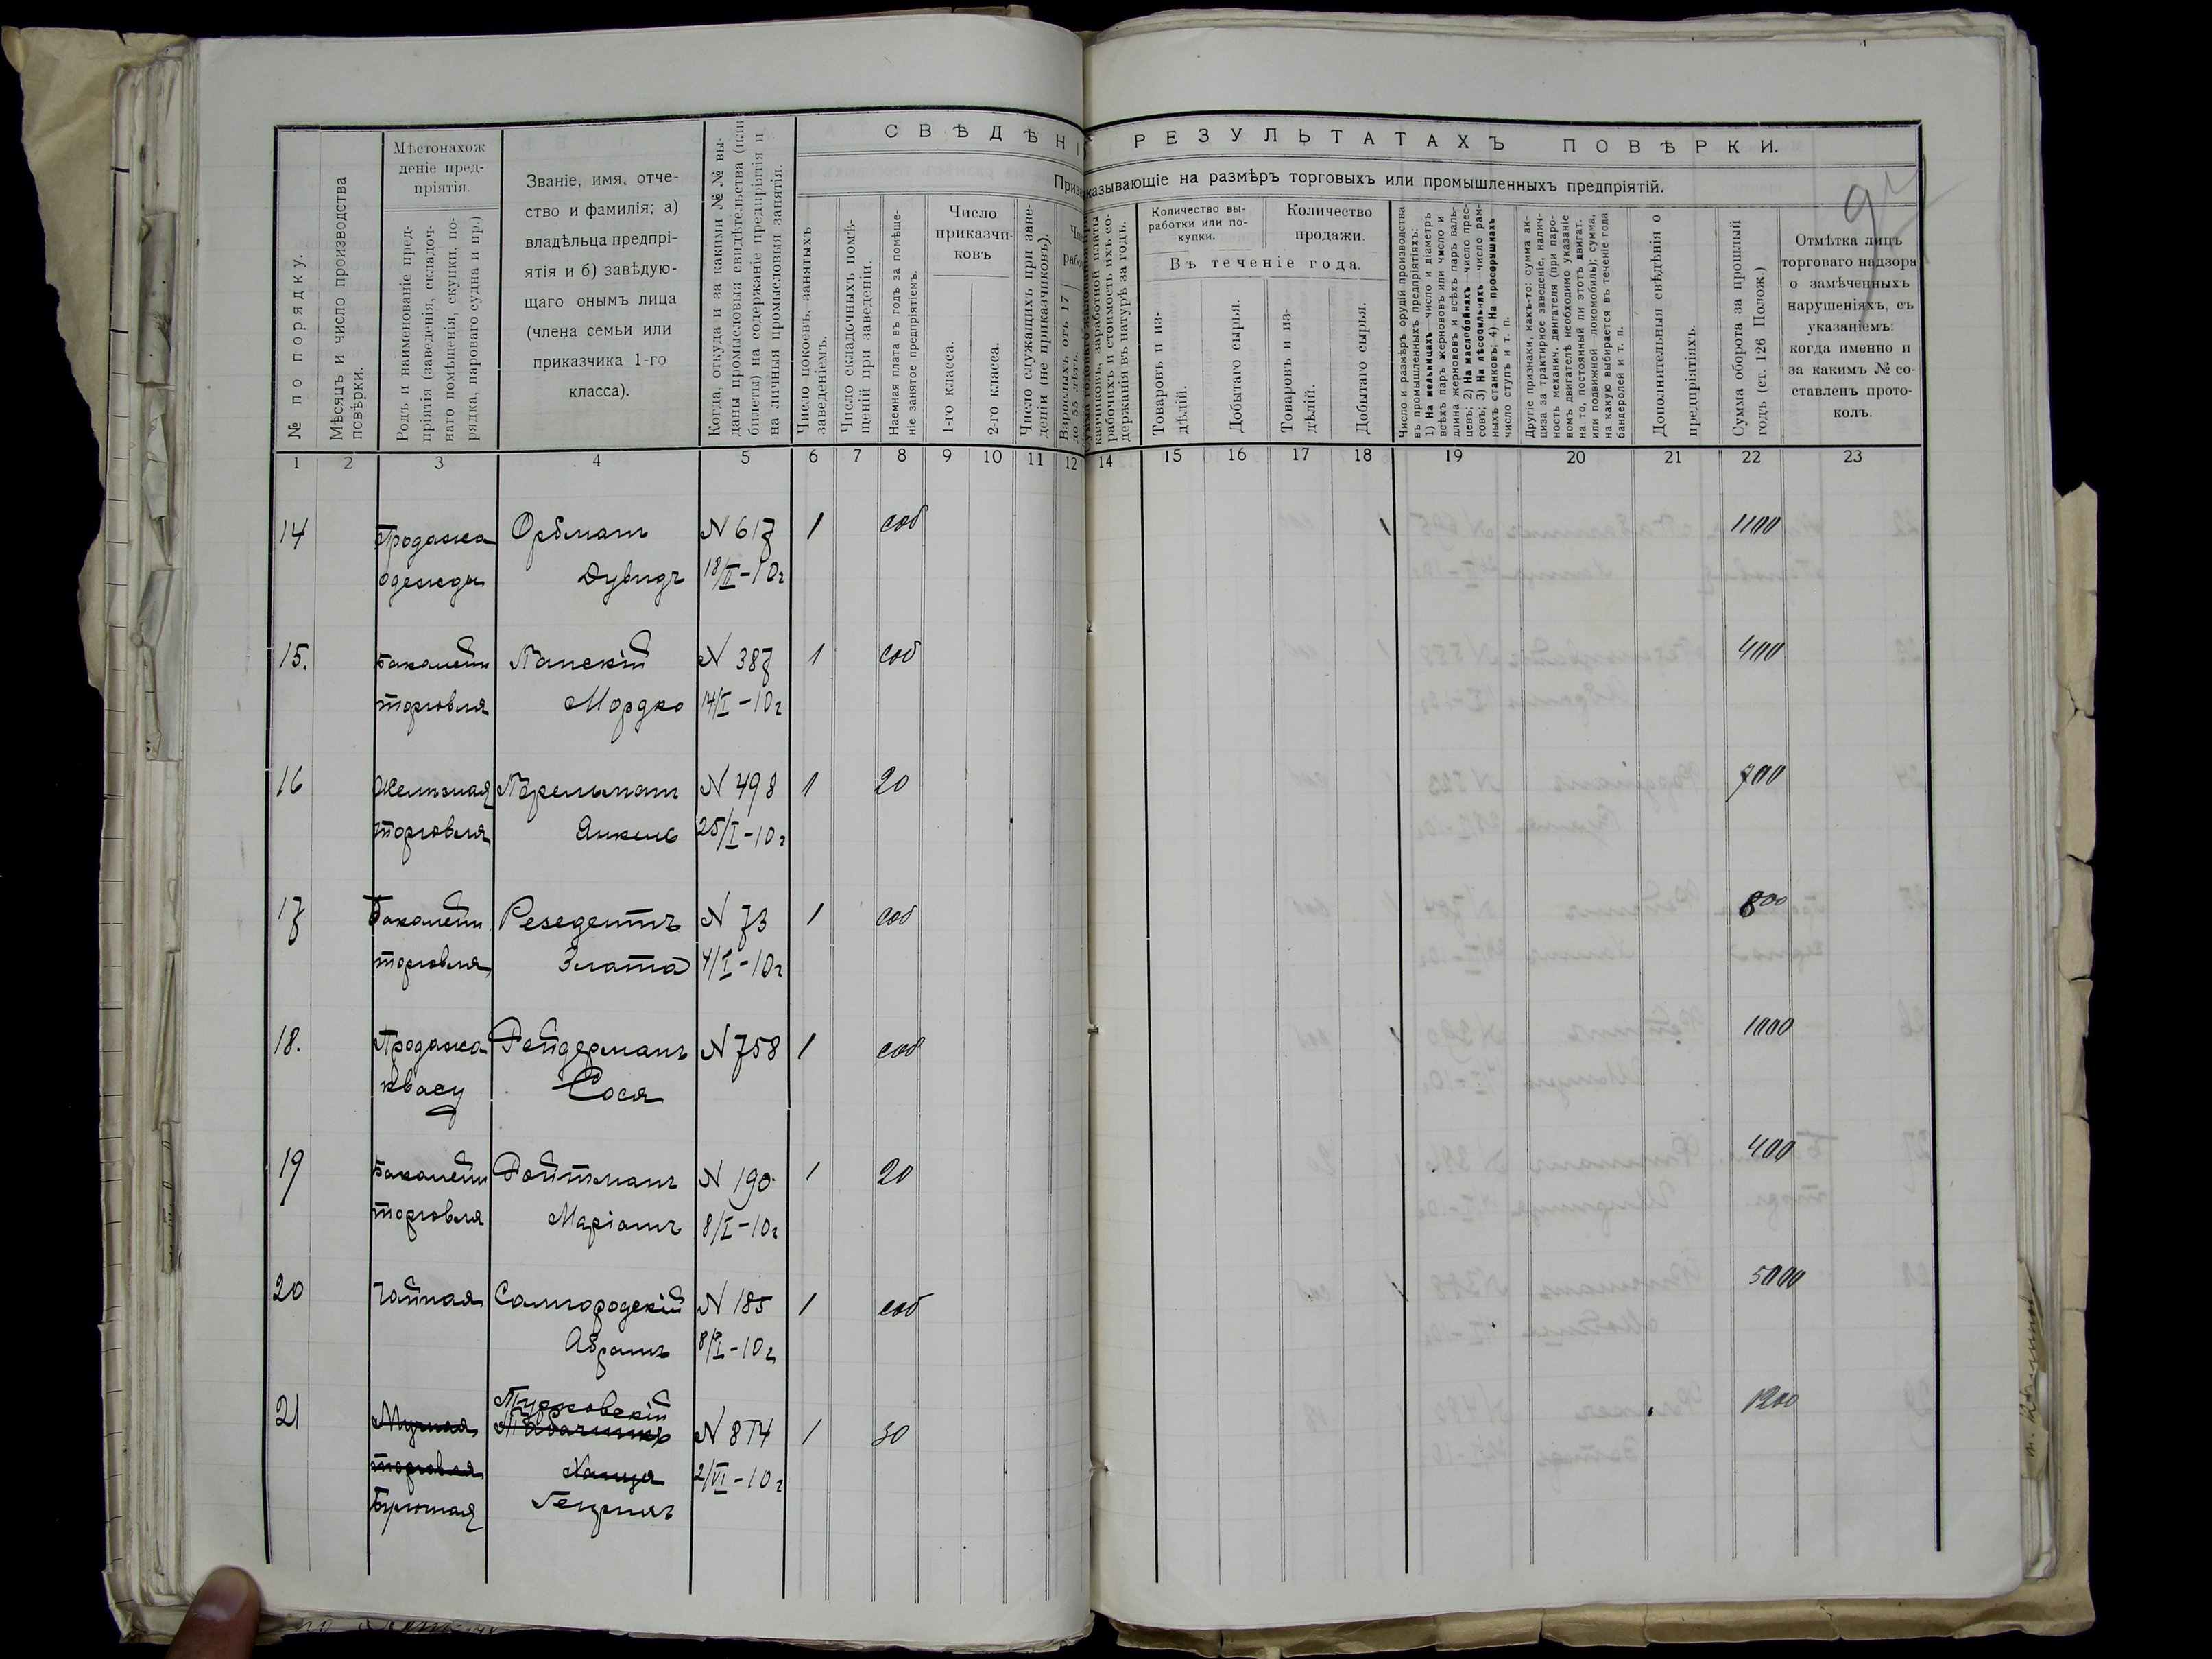 СВѢДѢНІ РЕЗУЛЬТАТАХЪ ПОВѢРКИ.
казывающіе на размѣръ торговыхъ или промышленныхъ предпріятій.
№ по порядку.
Мѣсяцъ и число производства
повѣрки.
Мѣстонахож
деніе пред-
пріятія.
Родъ и наименованіе пред-
пріятія (заведенія, складоч-
наго помѣщенія, скупки, по-
рядка, пароваго судна и пр.)
Званіе, имя, отче-
ство и фамилія; а)
владѣльца предпрі-
ятія и б) завѣдую-
щаго онымъ лица
(члена семьи или
приказчика 1-го
класса).
Когда, откуда и за какими № № вы-
даны промысловыя свидѣтельства (или
билеты) на содержаніе предпріятія и
на личныя промысловыя занятія.
Число покоевъ, занятыхъ
заведеніемъ.
Число складочныхъ помѣ-
щеній при заведеніи.
Наемная плата въ годъ за помѣще-
ніе занятое предпріятіемъ.
Число
приказчи-
ковъ
1-го класса.
2-го класса.
Число служащихъ при заве-
деніи (не приказчиковъ).
Взрослыхъ отъ 17
до 55 лѣтъ.
казчиковъ, заработной платы
рабочихъ и стоимость ихъ со-
держанія въ натурѣ за годъ.
Количество вы-
работки или по-
купки.
Количество
продажи.
Въ теченіе года.
Товаровъ и из-
дѣлій.
Добытаго сырья.
Товаровъ и из-
дѣлій.
Добытаго сырья.
Число и размѣръ орудій производства
въ промышленныхъ предпріятіяхъ:
1) На мельницахъ число и діаметръ
всѣхъ паръ жернововъ или число и
длина жернововъ и всѣхъ паръ валь-
цевъ; 2) На маслобойняхъ—число прес-
совъ; 3) На лѣсопильняхъ число рам-
ныхъ станковъ; 4) На просорушкахъ
число ступъ и т. п.
Другіе признаки, какъ-то: сумма ак-
циза за трактирное заведеніе, налич-
ность механич. двигателя (при паро-
вомъ двигателѣ необходимо указаніе
на то, постоянный ли этотъ двигат.
или подвижной—локомобиль); сумма,
на какую выбирается въ теченіе года
бандеролей и т. п.
Дополнительныя свѣдѣнія о
предпріятіяхъ.
Сумма оборота за прошлый
годъ (ст. 126 Полож.)
Отмѣтка лицъ
торговаго надзора
о замѣченныхъ
нарушеніяхъ, съ
указаніемъ:
когда именно и
за какимъ № со-
ставленъ прото-
колъ.
1 2 3 4 5 6 7 8 9 10 11 12 14 15 16 17 18 19 20 21 22 23
14 Продажа Орбманъ N 617 1 соб 1100
одежды Дувидъ 18/II-10 г
15. Бакалейн Лапскій N 387 1 соб 400
торговля Мордко 14/I-10 г
16 Желѣзная Перельманъ N 498 1 20 700
торговля Янкель 25/I-10 г
17 Бакалейн Резедентъ N 73 1 соб 800
торговля Злата 4/I-10 г
18. Продажа Рейдерманъ N 758 1 соб 1000
квасу Сося
19 Бакалейн Ройтманъ N 190 1 20 400
торговля Маріамъ 8/I-10 г
20 Чайная Самгородскій N 185 1 соб 5000
Абрамъ 8/I-10 г
21 Мучная N 874 1 30 1200
торговля Ханця 2/VI-10 г